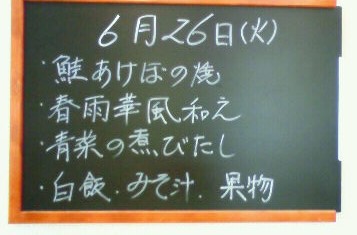 6月26日(火)
・鮭あけぼの焼
・春雨華風和え
・青菜の煮びたし
・白飯．みそ汁．果物